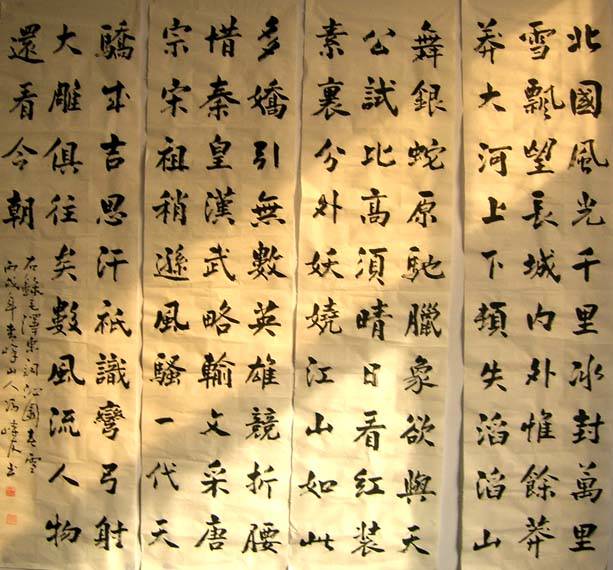 北國風光千里冰封萬里
雪飄望長城內外惟餘莽
莽大河上下頓失滔滔山
舞銀蛇原馳臘象欲與天
公試比高須晴日看紅裝
素裹分外妖嬈江山如此
多嬌引無數英雄競折腰
惜秦皇漢武略輸文采唐
宗宋祖稍遜風騷一代天
驕成吉思汗祇識彎弓射
大雕俱往矣數風流人物
還看今朝
右錄毛澤東詞沁園春雪
丙戌年山人馮書